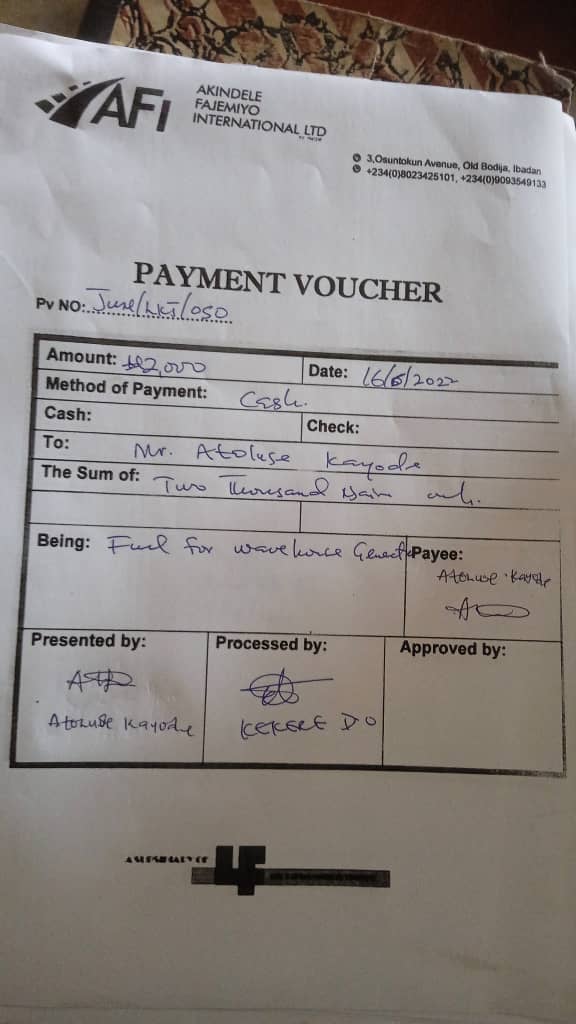 AFI
AKINDELE
FAJEMIYO
INTERNATIONAL LTD
3,Osuntokun Avenue, Old Bodija, Ibadan
+234(0)8023425101, +234(0)9093549133
PAYMENT VOUCHER
Pv NO: June/LKJ/050
Amount: ₦2,000 Date: 16/6/2022
Method of Payment: Cash.
Cash: Check:
To: Mr. Atoluse Kayode
The Sum of: Two Thousand Naira only.
Being: Fuel for warehouse Generator Payee:
Atoluse Kayode
Presented by: Processed by: Approved by:
Atoluse Kayode KEKERE DO
A SUBSIDIARY OF